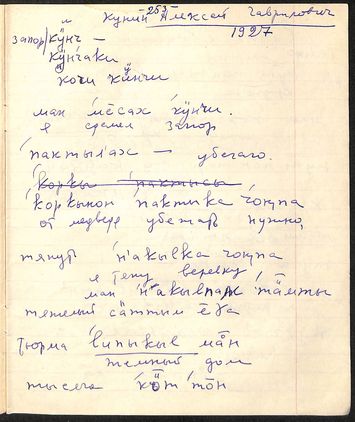 -253-
Кунин Алексей Гаврилович
1927
запор/кӱнч –
кӱнчаки
кочи кӱнчи
ман мёсах кӱнчи.
я сделал запор
пактылах — убегаю.
коркы пактысы
коркынон пактыка чоңпа
от медведя убежать нужно,
тянуть накылка чоңпа
я тяну веревку
ман накылпах тāмты
тяжелый сāттым ēӷа
тюрьма лӣпыкыл мāн
темный дом
тысяча кӧт тōн